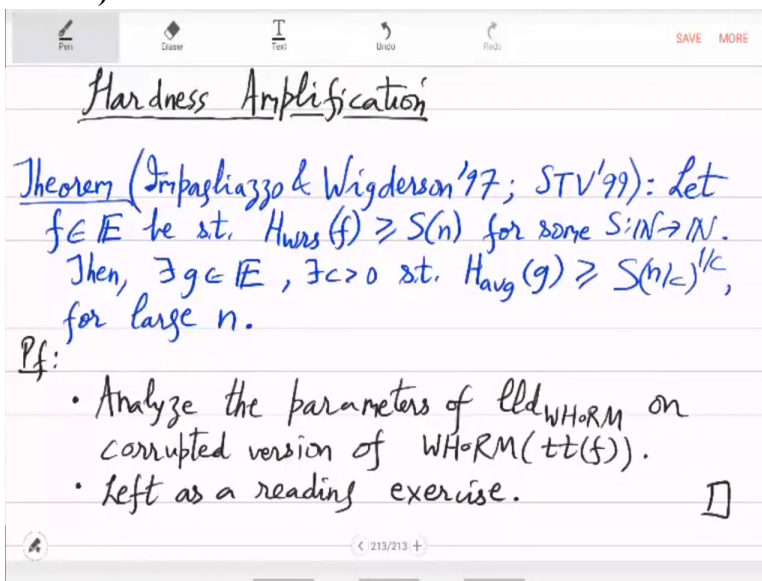 Pen Eraser Text Undo Redo SAVE MORE
Hardness Amplification
Theorem (Impagliazzo & Wigderson'97; STV'99): Let
f∈E be s.t. H_wrs(f) ≥ S(n) for some S:ℕ→ℕ.
Then, ∃g∈E, ∃c>0 s.t. H_avg(g) ≥ S(n/c)^{1/c},
for large n.
Pf:
• Analyze the parameters of lld_WH∘RM on
corrupted version of WH∘RM(tt(f)).
• Left as a reading exercise. □
< 213/213 +